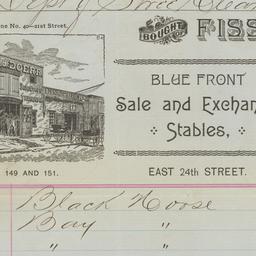 Dept of Street Clean
ne No. 40—21st Street.
BOUGHT OF FISS
& DOERR
BLUE FRONT
Sale and Exchan
Stables,
149 AND 151.
EAST 24th STREET.
Black Horse
Bay "
" "